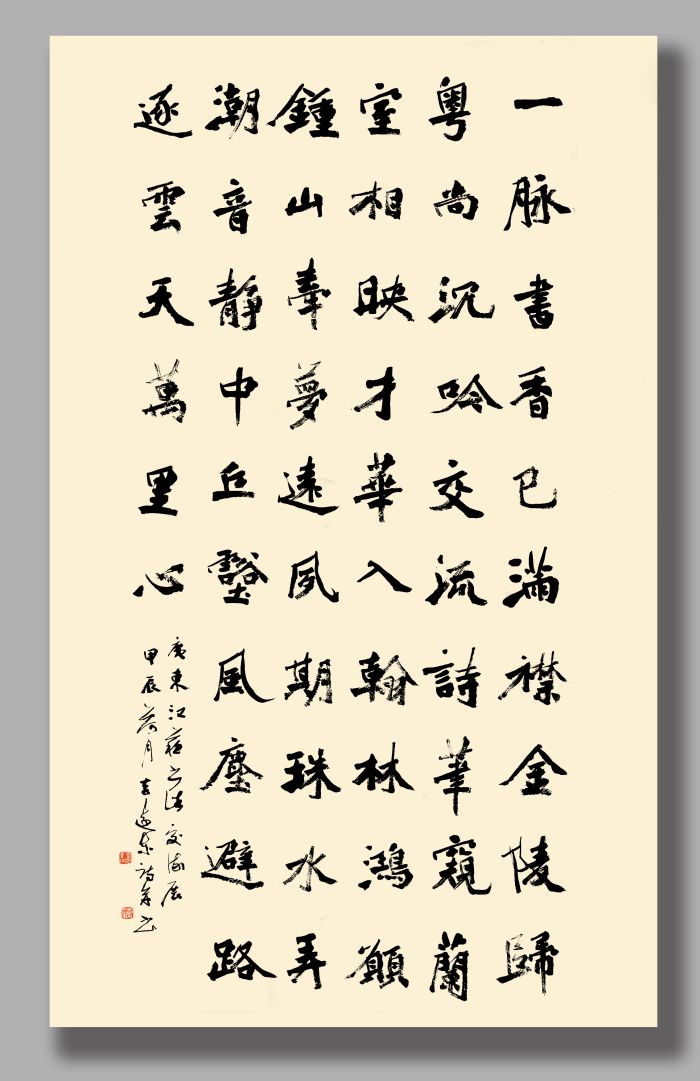 一脉書香已滿襟金陵歸
粵尚沉吟交流詩筆窺蘭
室相映才華入翰林鴻願
鍾山牽夢遠夙期珠水弄
潮音靜中丘壑風塵避路
逐雲天萬里心
廣東江蘇書法交流展
甲辰荷月